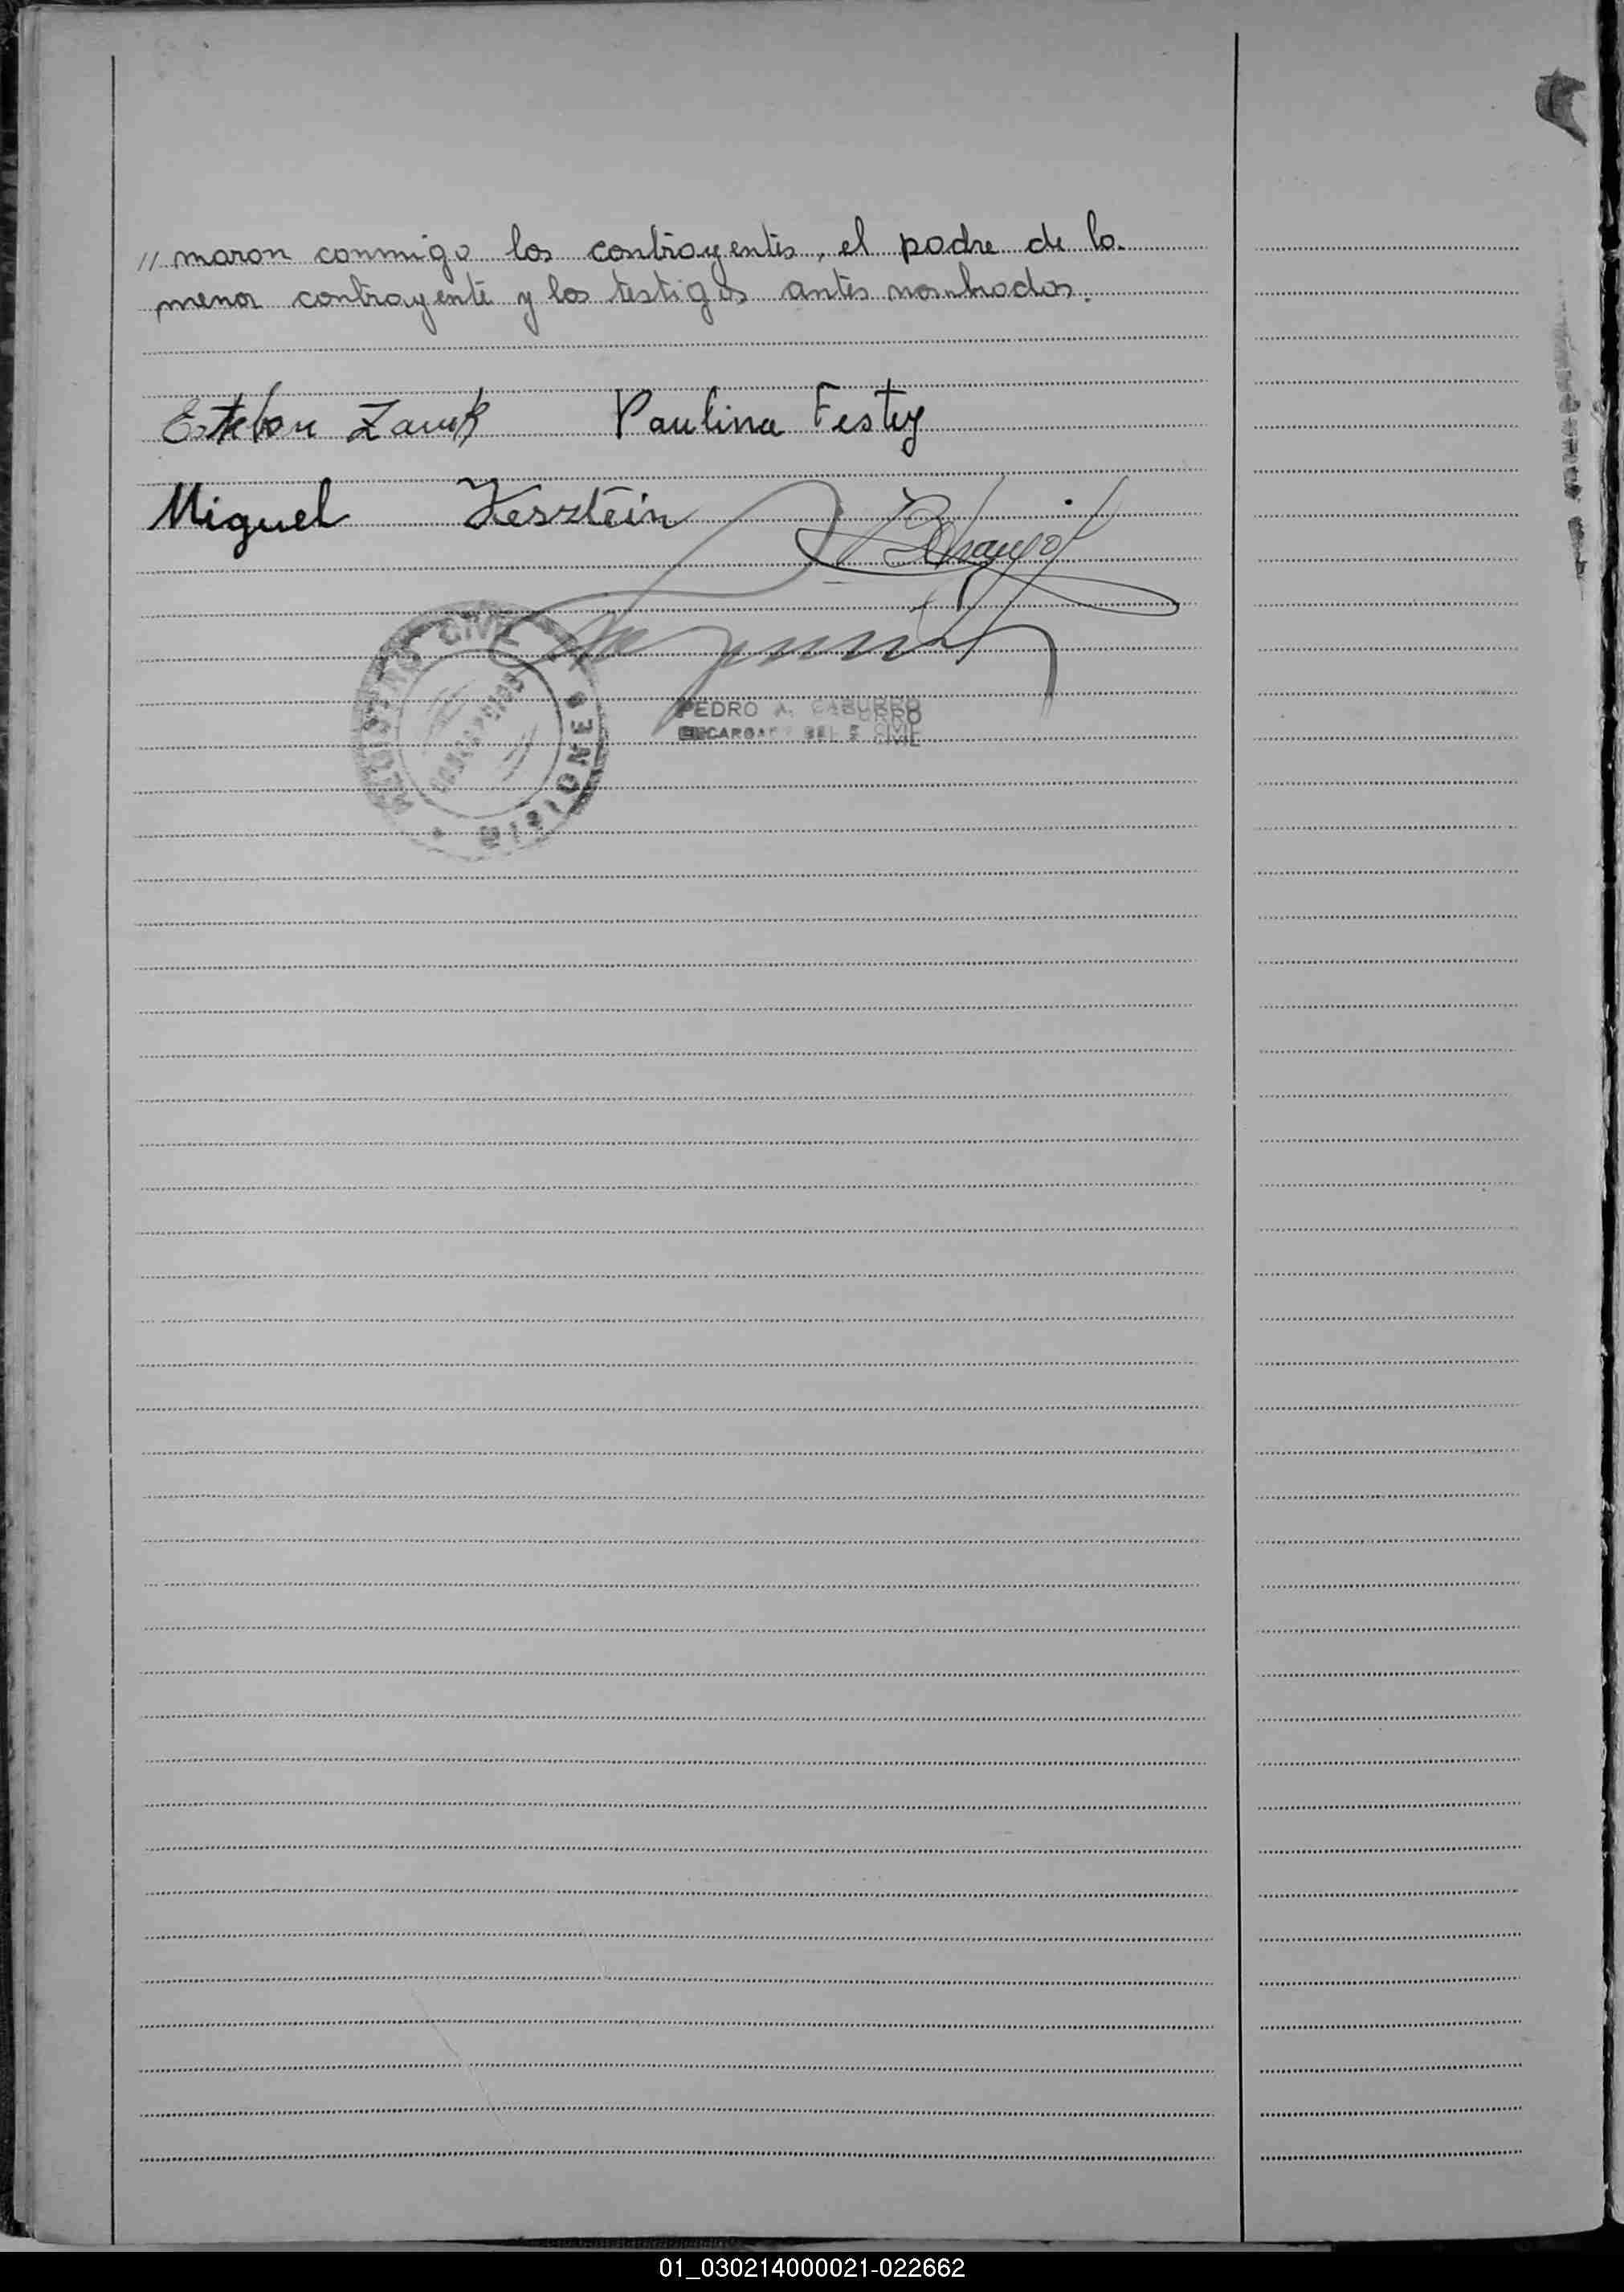 // maron conmigo los contrayentes, el padre de la
menor contrayente y los testigos antes nombrados.
Esteban Zauk Paulina Festey
Miguel Kesztein
REGISTRO CIVIL
MISIONES
PEDRO A. CABURRO
ENCARGADO DEL R. CIVIL
01_030214000021-022662